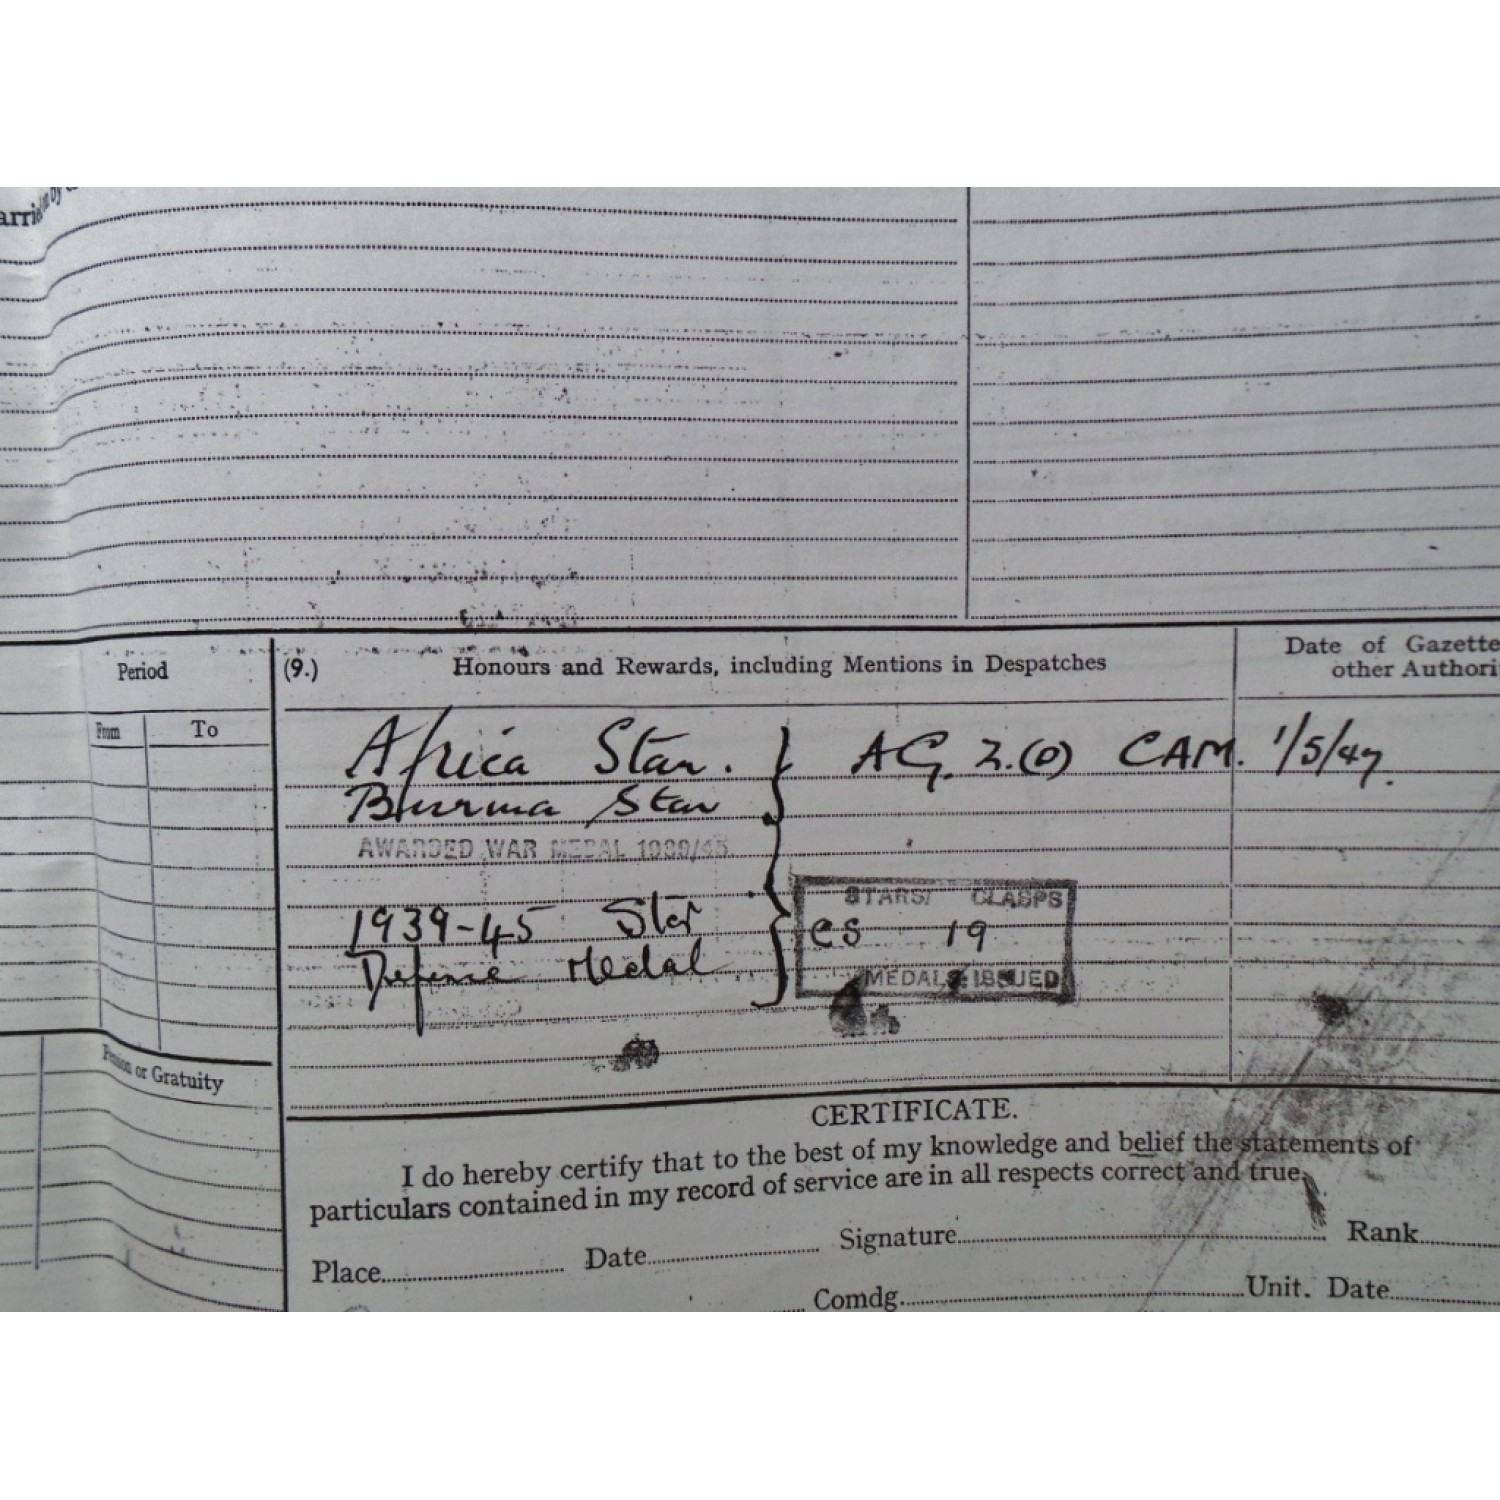 Period
From To
(9.) Honours and Rewards, including Mentions in Despatches
Date of Gazette
other
Africa Star. } AG. 2.(O) CAM. 1/5/47.
Burma Star
AWARDED WAR MEDAL 1939/45
STARS/ CLASPS
1939-45 Star } es 19
Defense Medal
MEDALS ISSUED
or Gratuity
CERTIFICATE.
I do hereby certify that to the best of my knowledge and belief the statements of
particulars contained in my record of service are in all respects correct and true.
Place Date Signature Rank
Comdg. Unit. Date